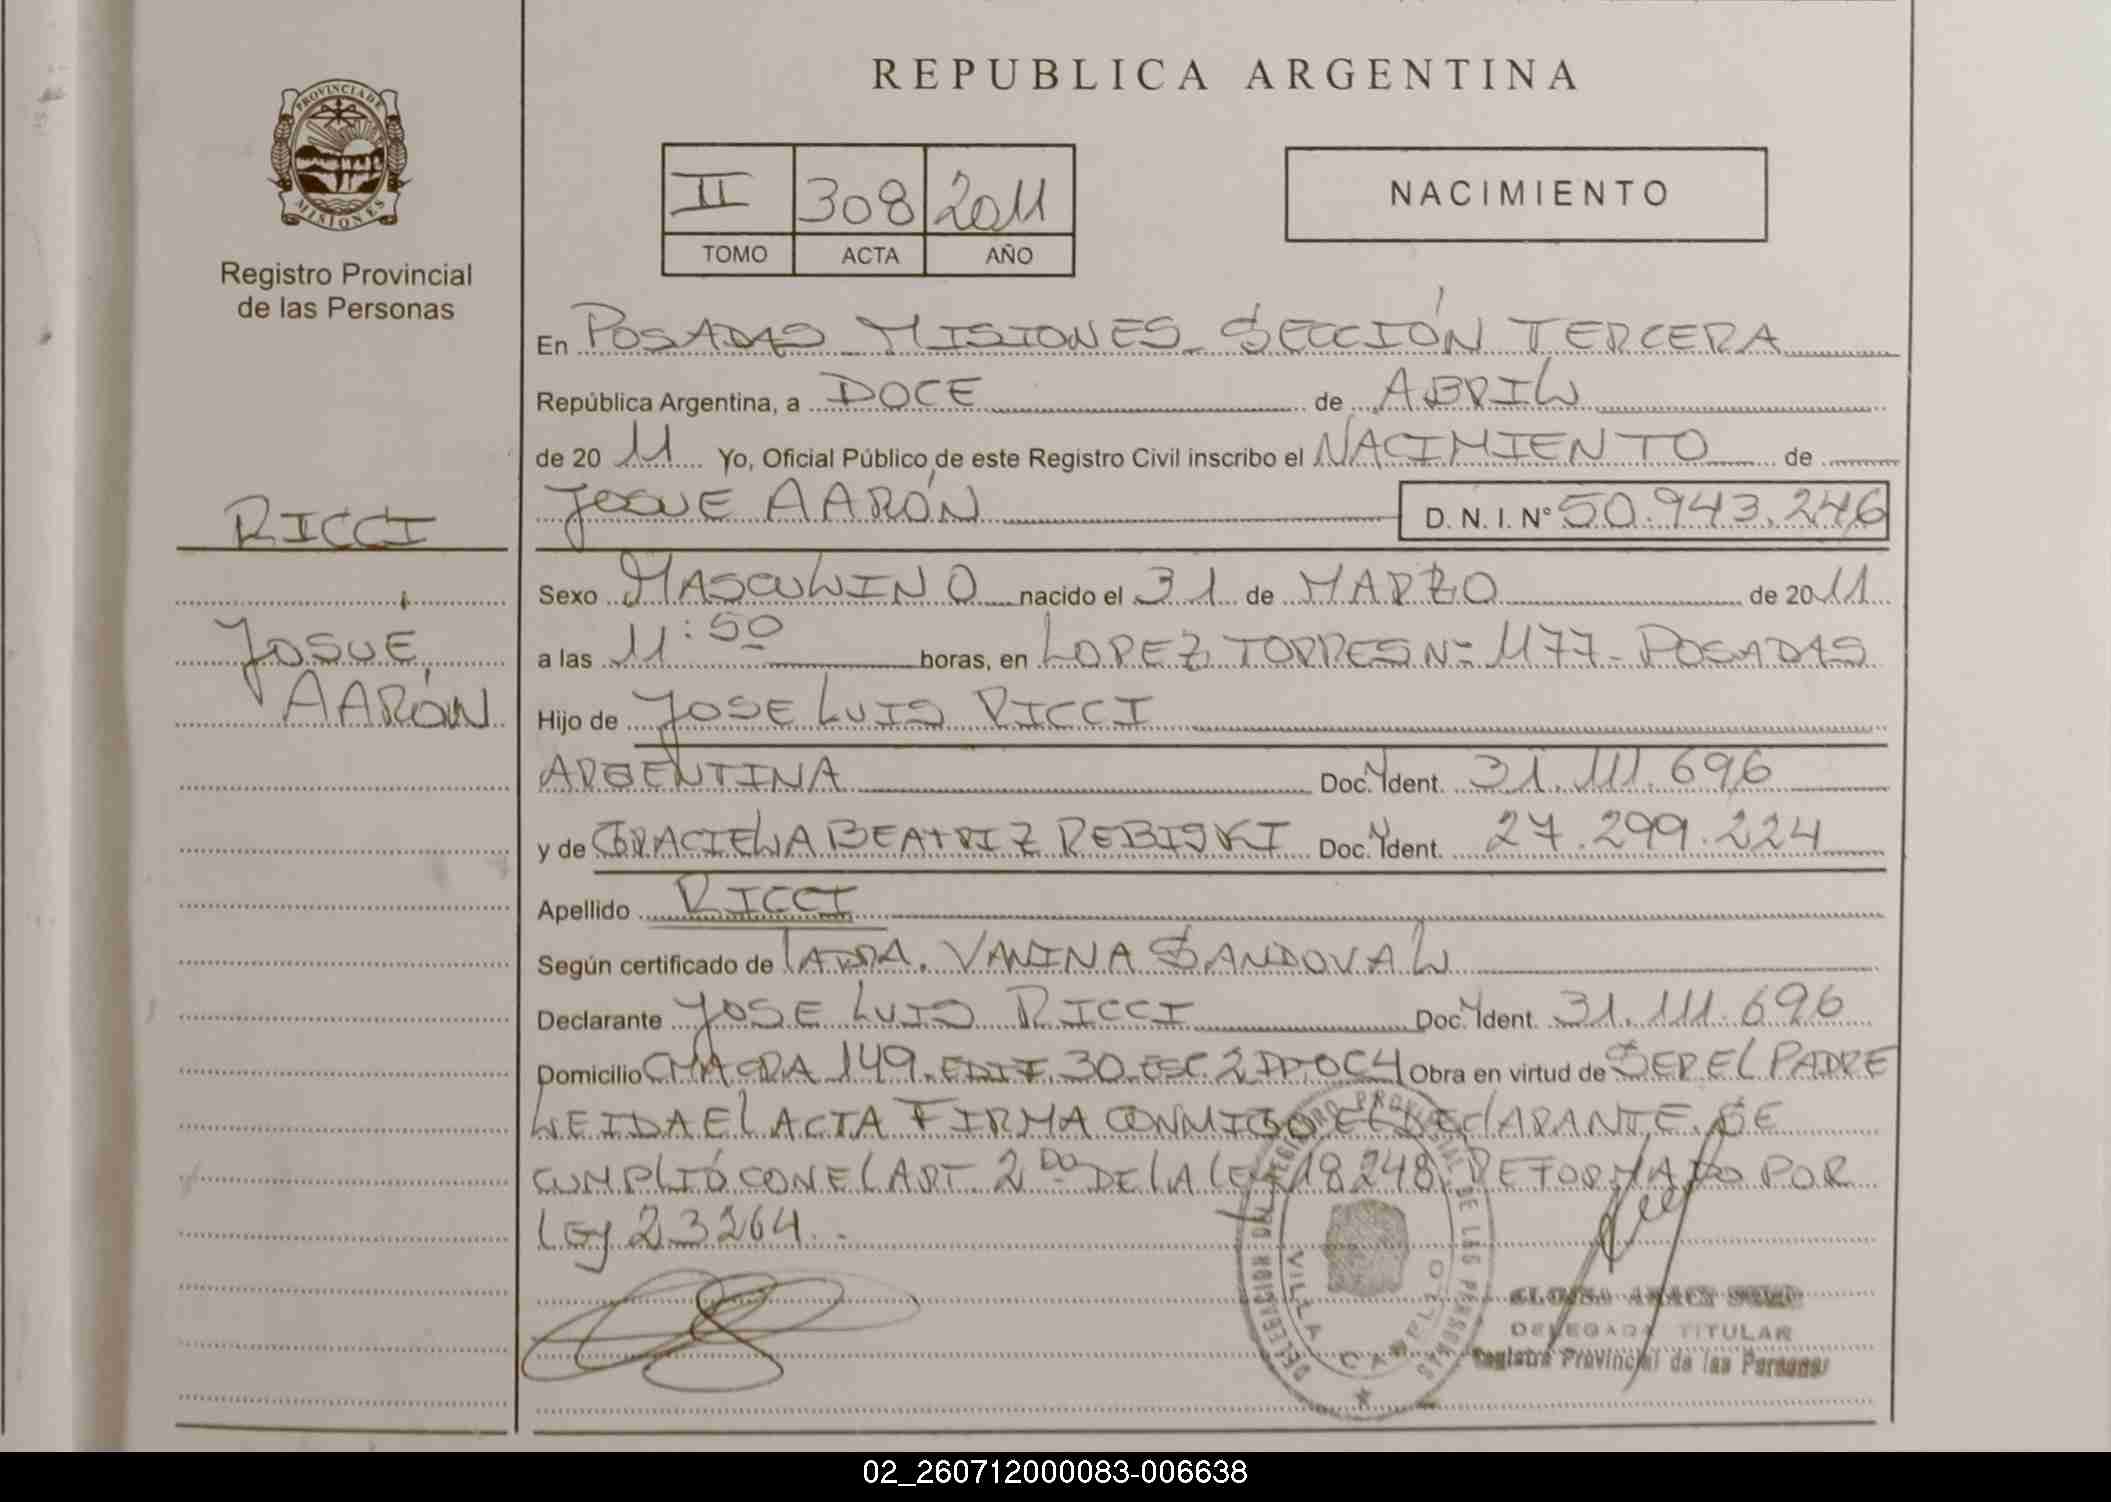 REPUBLICA ARGENTINA
PROVINCIA DE
MISIONES
Registro Provincial
de las Personas
II 308 2011
TOMO ACTA AÑO
NACIMIENTO
En POSADAS MISIONES SECCIÓN TERCERA
República Argentina, a DOCE de ABRIL
de 20 11 Yo, Oficial Público de este Registro Civil inscribo el NACIMIENTO de
JOSUE AARÓN D. N. I. Nº 50.943.246
RICCI
JOSUE,
AARÓN
Sexo MASCULINO nacido el 31 de MARZO de 2011
a las 11:50 horas, en LOPEZ TORRES Nº 1177 - POSADAS
Hijo de JOSE LUIS RICCI
ARGENTINA Doc. Ident. 31.111.696
y de GRACIELA BEATRIZ REBISKI Doc. Ident. 27.299.224
Apellido RICCI
Según certificado de LA DRA. VANINA SANDOVAL
Declarante JOSE LUIS RICCI Doc. Ident. 31.111.696
Domicilio CHACRA 149. EDIF. 30. ESC. 2 DPTO C4 Obra en virtud de SER EL PADRE
LEIDA EL ACTA FIRMA CONMIGO EL DECLARANTE. SE
CUMPLIÓ CON EL ART. 2DO DE LA LEY 18248, REFORMADO POR
LEY 23264.
DELEGACION DEL REGISTRO PROVINCIAL DE LAS PERSONAS
VILLA CABELLO
DELEGADA TITULAR
Registro Provincial de las Personas
02_260712000083-006638